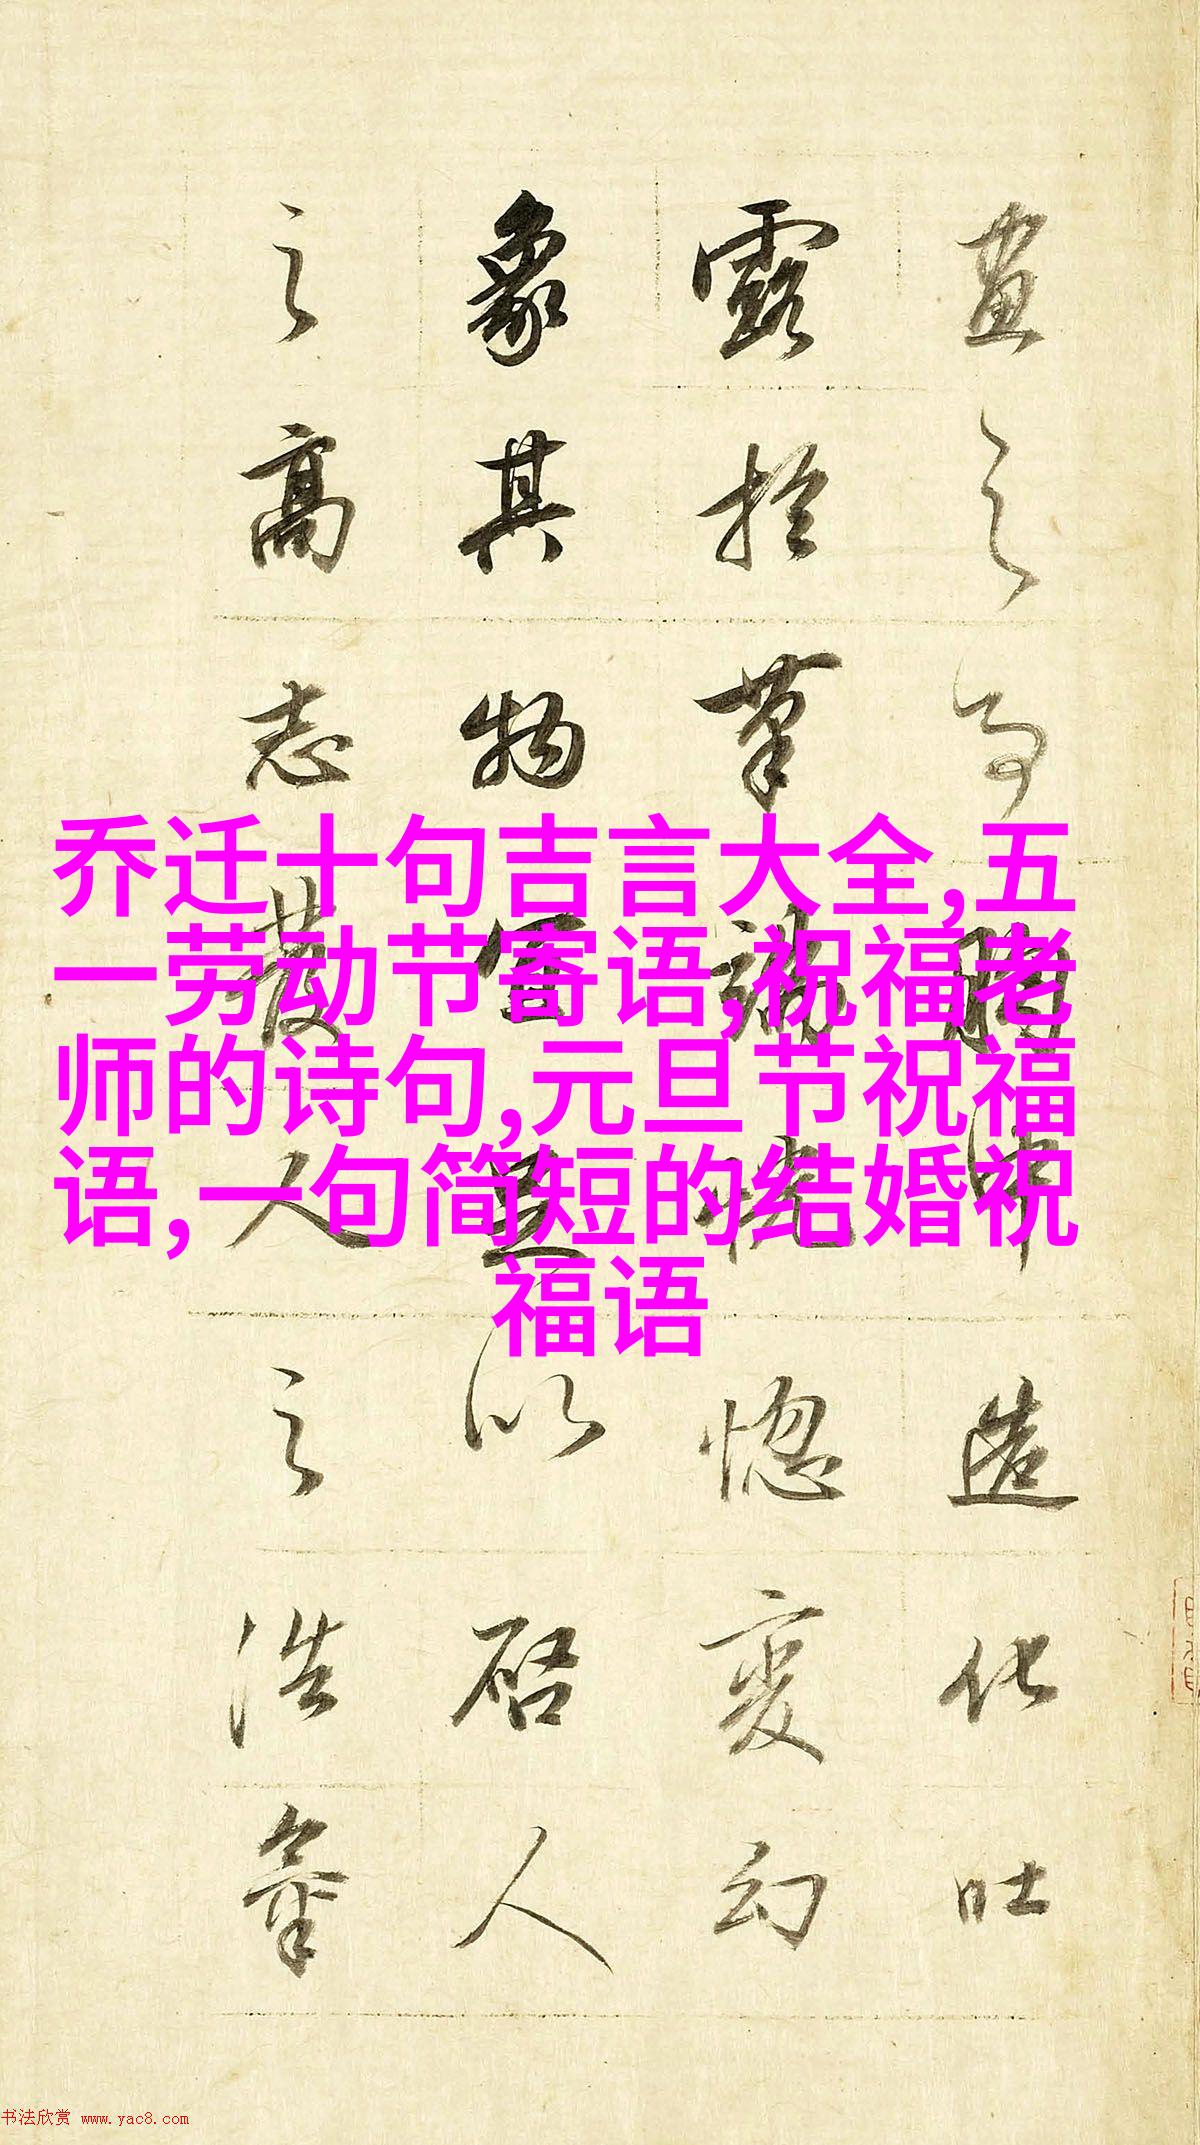 乔迁十句吉言大全,五
一劳动节寄语,祝福老
师的诗句,元旦节祝福
语,一句简短的结婚祝
福语
畫之造化吐
露於筆端恍惚變幻
象其物宜足以啓人
之高志發人之浩氣
书法欣赏 www.yac8.com